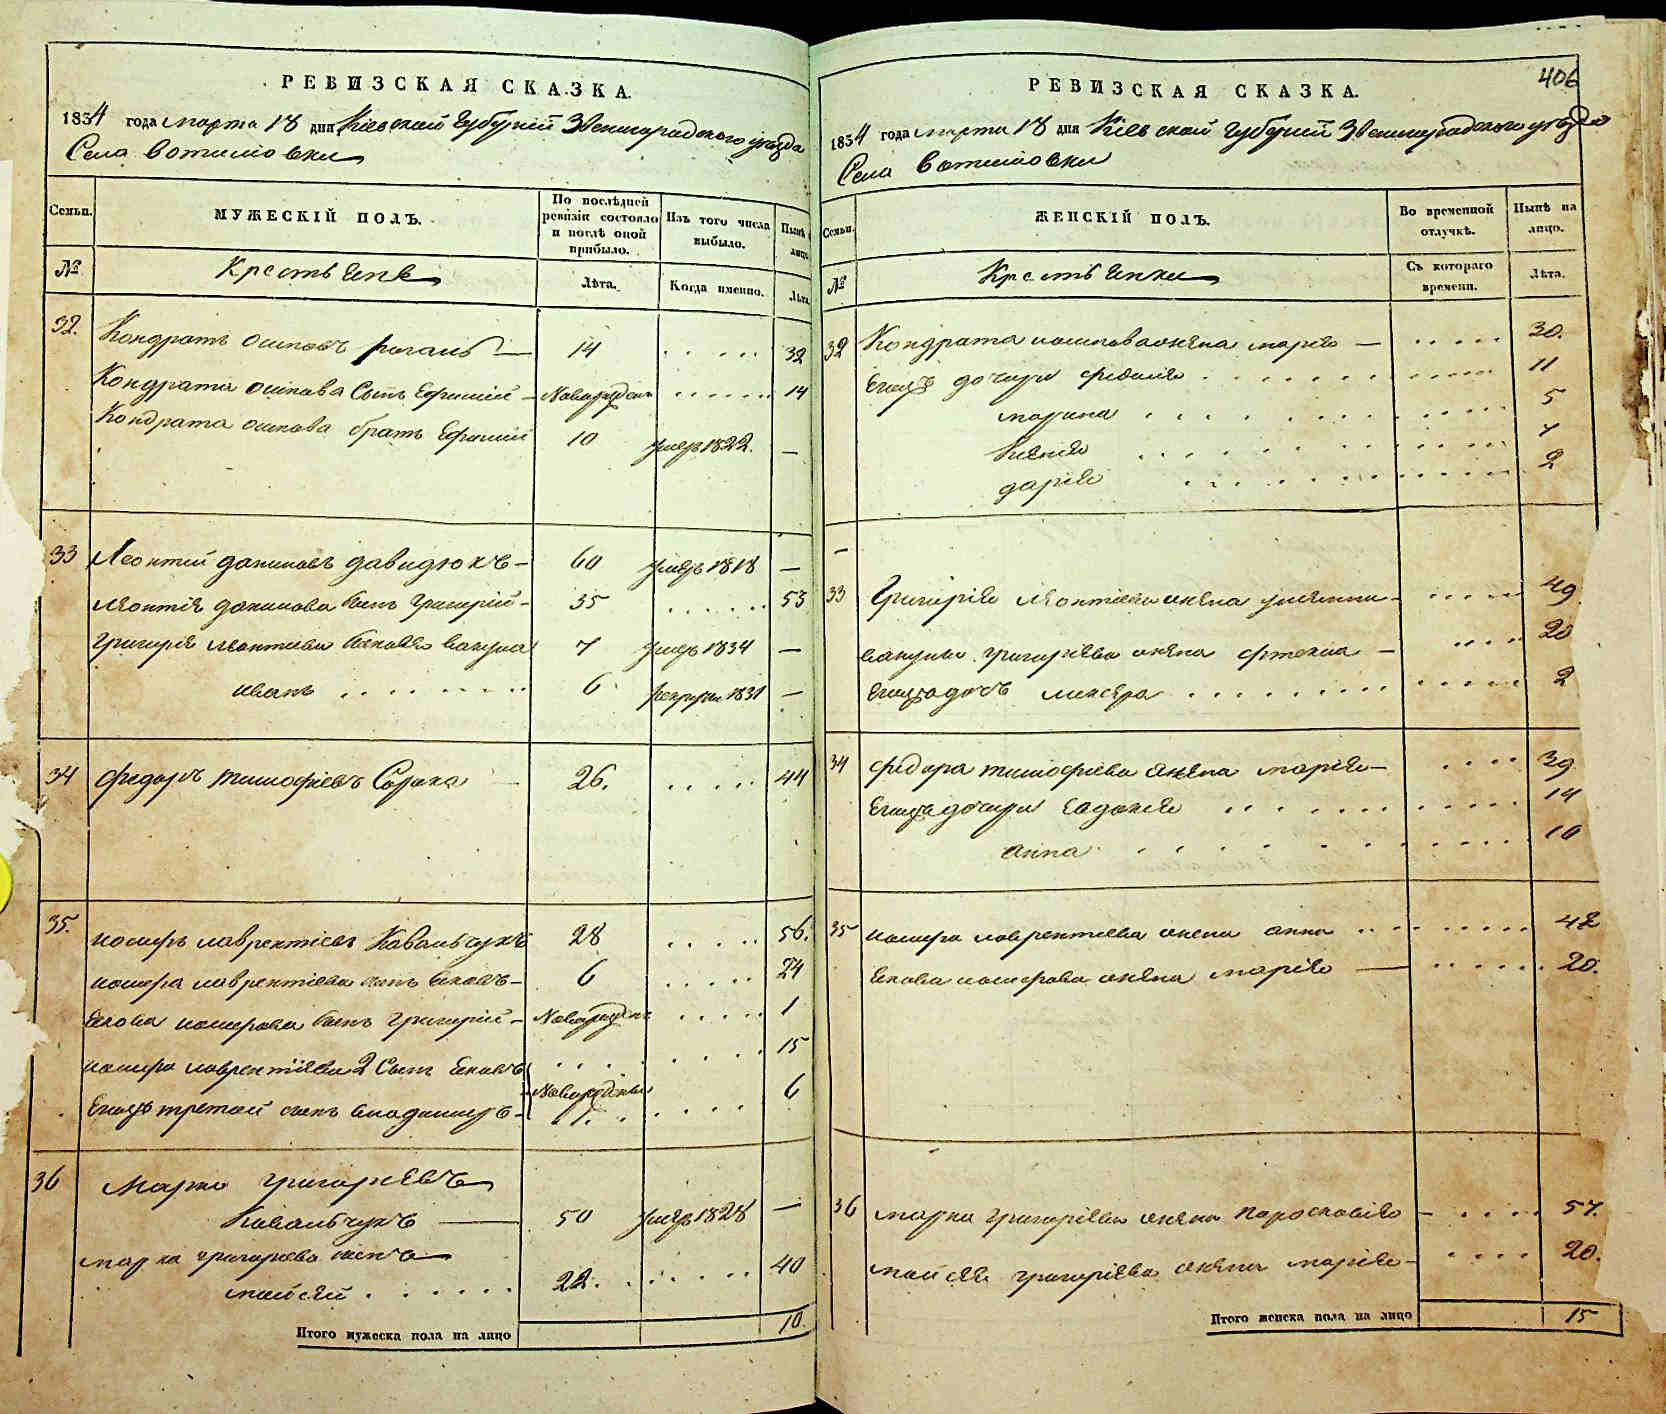 РЕВИЗСКАЯ СКАЗКА.
1834 года марта 18 дня Кіевской Губерніи Звенигородского уезда
Села Вотилювки
Семьи.
МУЖЕСКІЙ ПОЛЪ.
По послѣдней ревизіи состояло и послѣ оной прибыло.
Изъ того числа выбыло.
Нынѣ на лицо.
№
Крестьяне
Лѣта.
Когда именно.
Лѣта.
32. Кондратъ осиповъ 14 . . . . . 32
Кондрата осипова Сынъ Ефимій Новорожден . . . . . . 14
Кондрата осипова братъ Ефимій 10 умер 1822. —
33 Леонтій даниловъ давидюкъ — 60 умеръ 1818 —
леонтія данилова сынъ григорій — 35 . . . . . . 53
григорія леонтиева вакула 7 умеръ 1834 —
иванъ . . . . . . . 6 рекруты 1831 —
34 Федоръ тимофіевъ Сорока 26. . . . . . 44
35. иосифъ лаврентіевъ Ковальчукъ 28 . . . . . 56.
иосифа лаврентіева сынъ яковъ — 6 . . . . . 24
якова иосифова сынъ григорій — Новорожден . . . . . 1
иосифа лаврентіева 2 Сынъ яковъ . . . . . . . . 15
Егожъ третой сынъ владимиръ — Новорожденый . . . . . 6
36 Марко григорьевъ
Ковальчукъ — 50 умеръ 1828 —
марка григорьева сынъ —
моисей . . . . . . 22. . . . . . . 40
Итого мужеска пола на лицо 10.
406
РЕВИЗСКАЯ СКАЗКА.
1834 года марта 18 дня Кіевской губерніи Звенигородского уезда
Села Вотилювки
Семьи.
ЖЕНСКІЙ ПОЛЪ.
Во временной отлучкѣ.
Нынѣ на лицо.
№
Крестьянки
Съ котораго времени.
Лѣта.
32 Кондрата иосипова жена марія — . . . . . 30.
Егожъ дочери . . . . . . . . . . . . 11
марина . . . . . . . . . . . . 5
. . . . . . . . . . . .
дарія . . . . . . . . . . . . 2
—
33 Григорія леонтіева жена — . . . . . 49
вакулы григоріева жена — . . . . 20
Егожъ дочь . . . . . . . . . . . . . . 2
34 федора тимофіева жена марія — . . . . 39
Егожъ дочери Евдокія . . . . . . . . . . . . 14
анна . . . . . . . . . . . . 10
35 иосифа лаврентіева жена анна . . . . . . . . . 42
якова иосифова жена марія — . . . . . . 20.
36 марка григоріева жена Парасковія — . . . . 57.
моисея григоріева жена марія — . . . . 20.
Итого женска пола на лицо 15